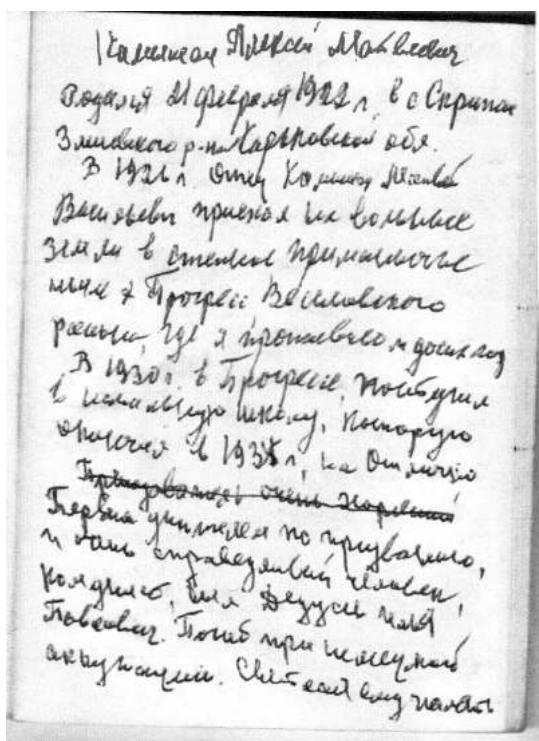 Алексей Матвеевич
Родился 21 февраля 1922 г. в с Скрипаи
Змиевского р-на Харьковской обл.
В 1926 г. Отец Матвей
Васильевич приехал на вольные
земли в степное
х Прогресс Веселовского
района, где я проживаю
В 1930 г. в Прогрессе, поступил
в начальную школу, которую
окончил в 193 г, на Отлично
очень хороший
Первый учитель по призванию,
и очень справедливый человек,
был Дедусь Илья
Павлович. Погиб при немецкой
оккупации. Светлая ему память